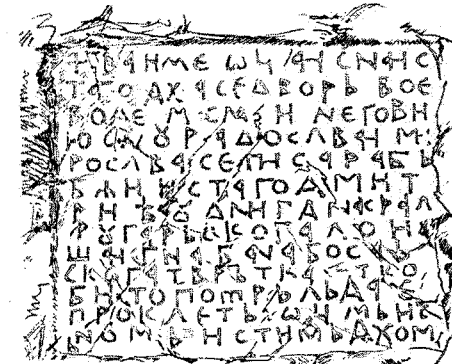 ВА ИМЕ ѠЦА И СНА И С
ТАГО ДХА А СЕ ДВОРЬ ВОЕ
ВОДЕ И НЕГОВИ
РАДОСЛВА И М
РОСЛВА СЕ ПИСА РАБЬ
БЖИ И СТАГО ДМИТ
РИ У ДНИ ГДНА КРАЛ
УГАРЬСКОГА ЛОИ
ША И ГНА БАНА БОС
СКОГА ТВРТКА ТКО
БИ ТО ПОТРЬ ДА Е
ПРОКЛЕТЬ ѠЦМЬ И С
НОМЬ И СТИМЬ ДХОМ